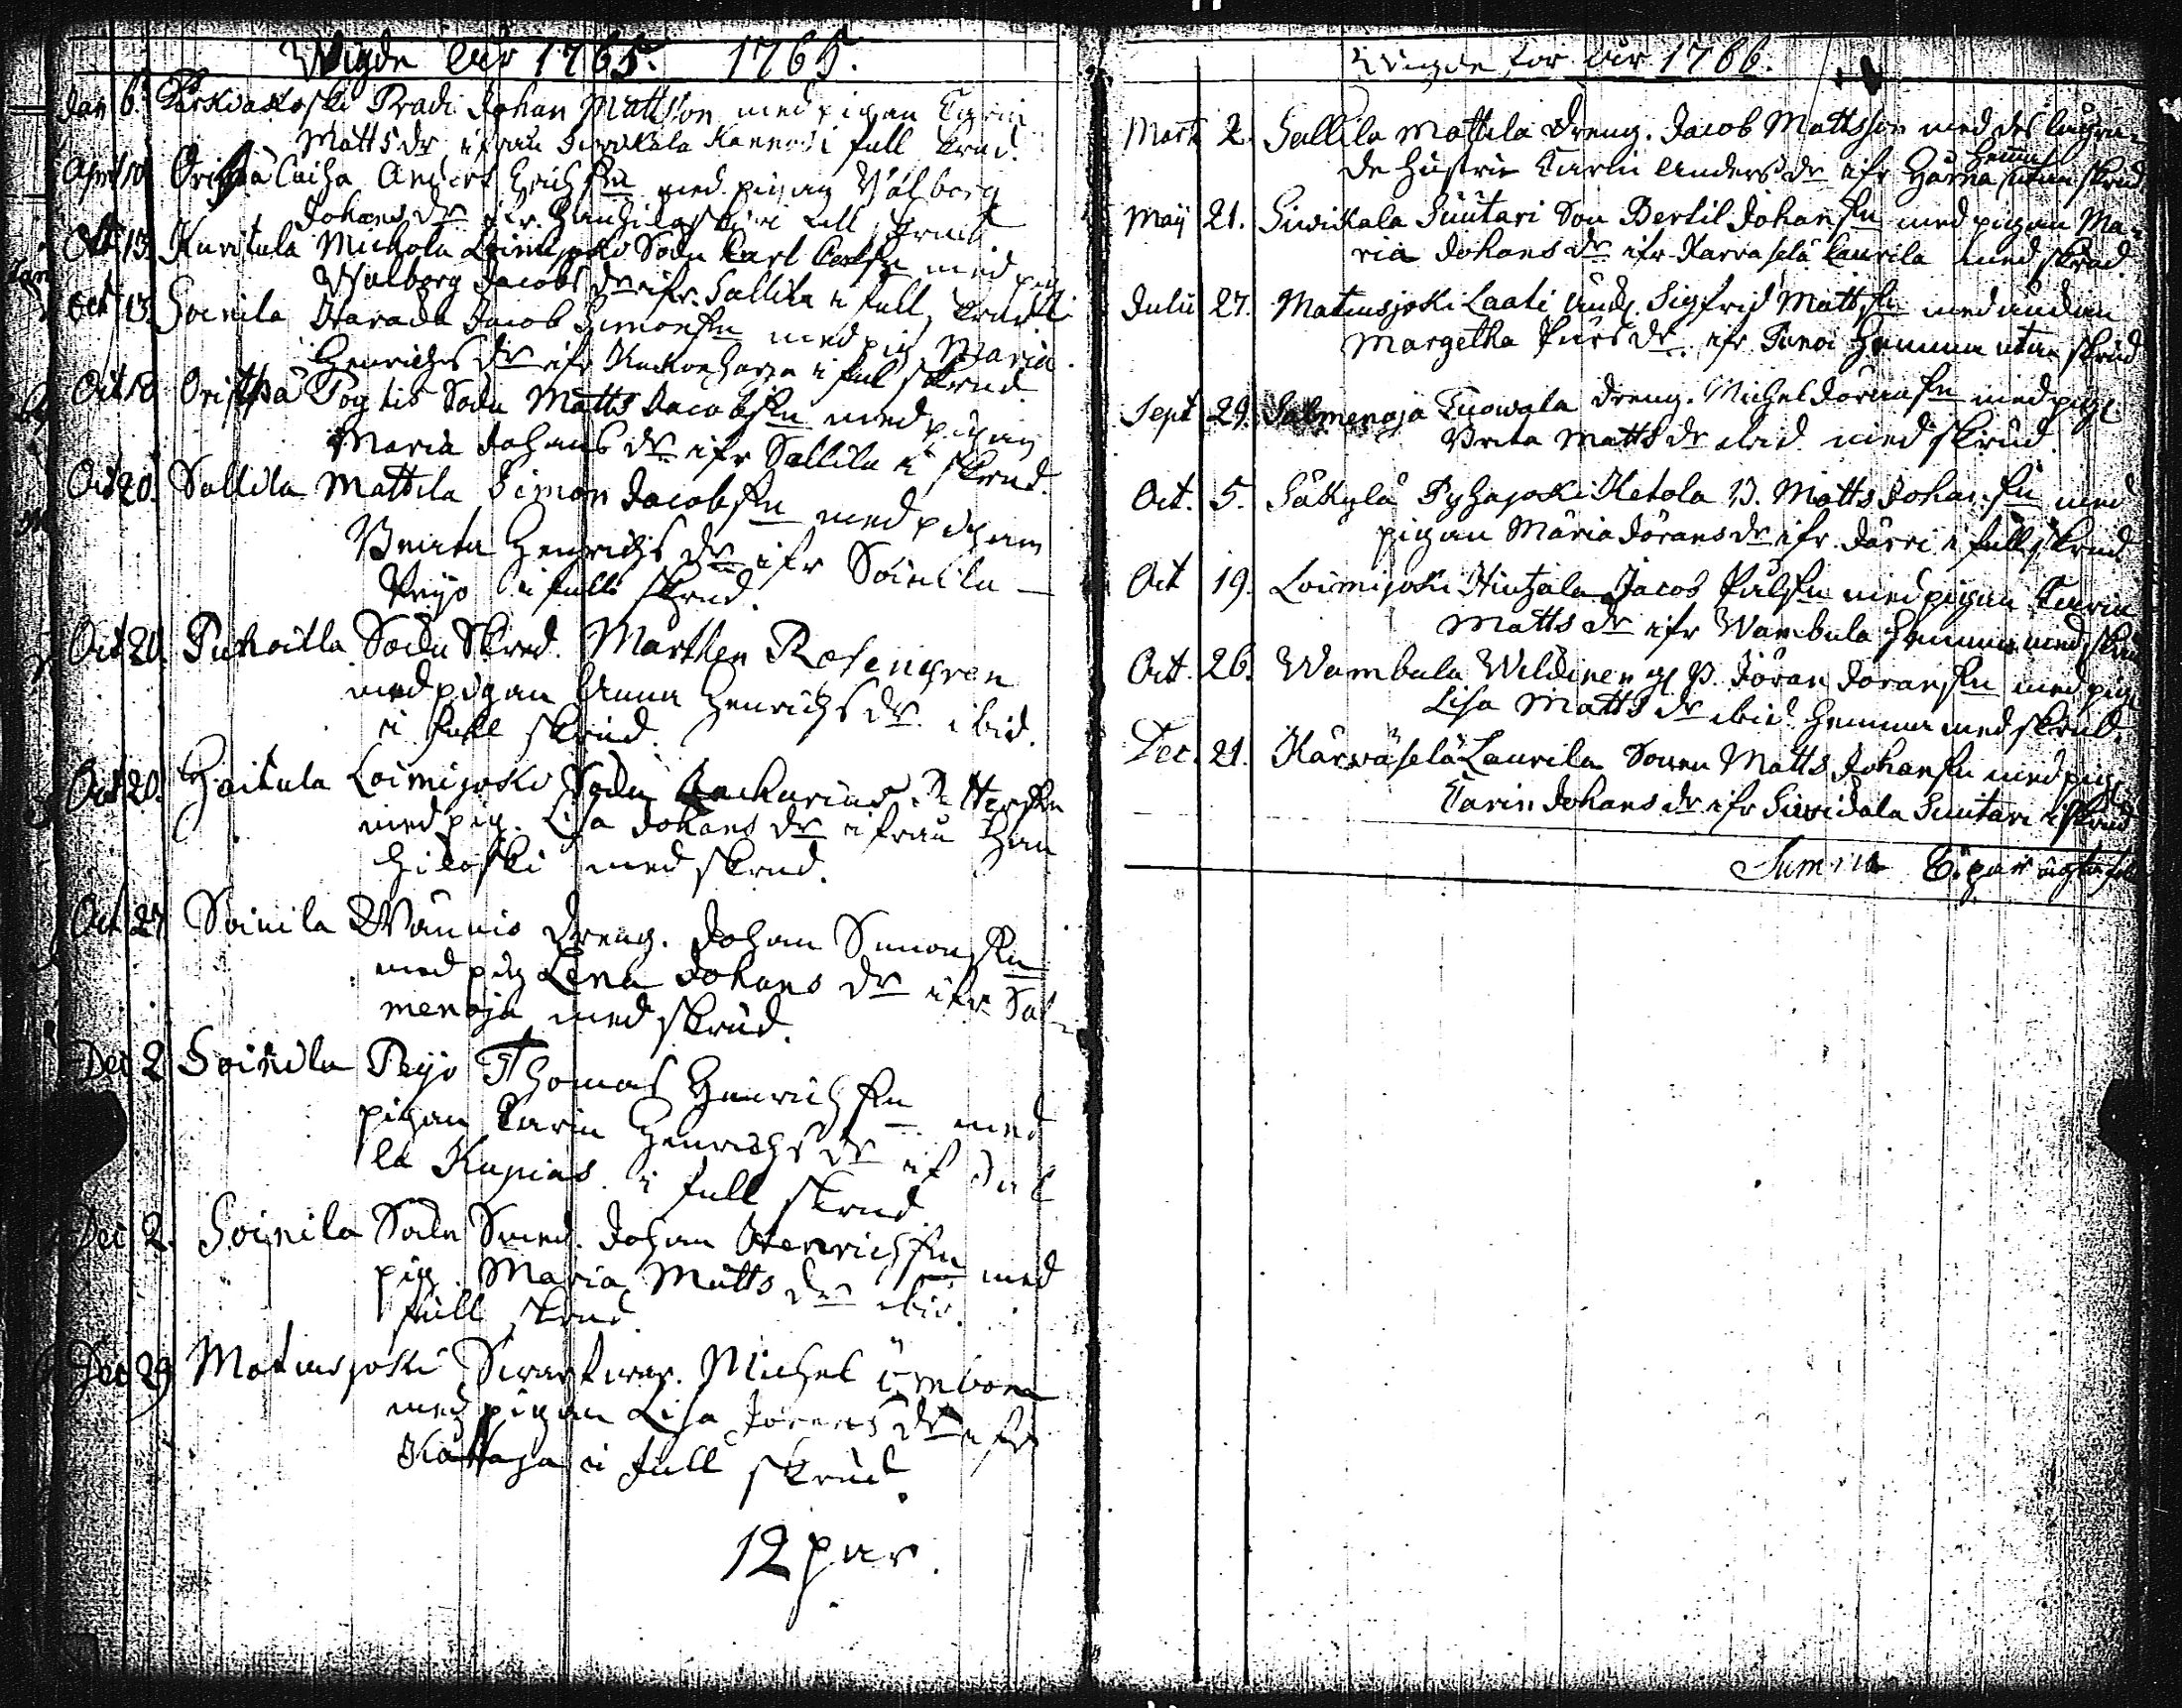 Wigde åhr 1765. 1765.
Jan 6. Wirkiäkoski Pradi Johan Mattsson med pigan Carin
Matts dr ifrån Siwikala i full krud.
Apr 10 Oripä Caiha Anders Erichssn med pigan Valborg
Johans dr ifr Hanhikoski i full krud.
Oct 13. Kuritula Michola Loimijoki Sodn Carl Carlssn med pig
Walborg Jacobs dr ifr. Sallila i full krud
Oct 13. Soinila Harada Jacob Simonssn med pig. Maria
Henrichs dr ifr i full skrud.
Oct 18 Oripä Poytis Sodn Matts Jacobssn med pigan
Maria Johans dr ifr Sallila i skrud.
Oct 20. Sallila Mattila Simon Jacobssn med pigan
Beata Henrichs dr ifr Soinila
Peijo i full skrud.
Oct 20. Puhoilla Sodn Skred. Marthen Rosengren
med pigan Anna Henrichs dr ibid.
i full skrud.
Oct 20. Haitula Loimijoki Sodn Zacharias
med pig. Lisa Johans dr ifrån Han
hikoski med skrud.
Oct 27 Soinila Wännio dreng. Johan Simonssn
med pig Lena Johans dr ifr Sal-
menoja med skrud.
Dec 2 Soinila Peijo Thomas Henrichssn med
pigan Carin Henrichs dr if
la Kupias i full skrud
Dec 2. Soinila Sodn Smed. Johan Henrichssn med
pig. Maria Matts dr ibid.
full skrud
Dec 29 Matinsjoki Swartwar. Michel
med pigan Lisa Jörens dr ifr
i full skrud.
12 par.
Wigde för åhr 1766.
Mart. 2. Sallila Mattila dreng. Jacob Mattsson med des lägra-
hemma
de hustru Carin Anders dr ifr Härna utan skrud
Maij 21. Siwikala Suutari Son Bertil Johanssn med pigan Ma-
ria Johans dr ifr Karvaselä Laurila med skrud.
Julii 27. Matinsjoki Laali Sigfrid Mattssn med
Margetha dr. ifr hemma utan skrud
Sept 29. Salmenoja Tuowala dreng. Michel Jöranssn med pig
Brita Matts dr ibid med skrud.
Oct. 5. Säkylä Pyhäjoki Ketola B. Matts Johanssn med
pigan Maria Jörans dr ifr. Järri i full skrud
Oct 19. Loimijoki Hintzala Jacob Pålssn med pigan Carin
Matts dr ifr Wambula hemma med skrud
Oct. 26. Wambula Wildinen Jöran Joranssn med pig
Lisa Matts dr ibid hemma med skrud.
Dec. 21. Kärväselä Laurila Sonen Matts Johanssn med pig
Carin Johans dr ifr Siwikala Suutari i skrud
Summa 8. par